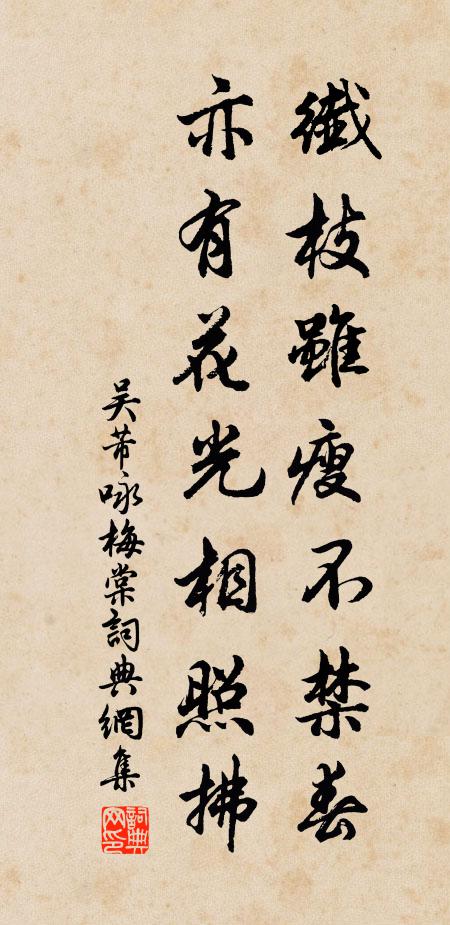 纖枝雖瘦不禁春
亦有花光相照拂
吴芾咏梅棠詞典網集
詞典網印